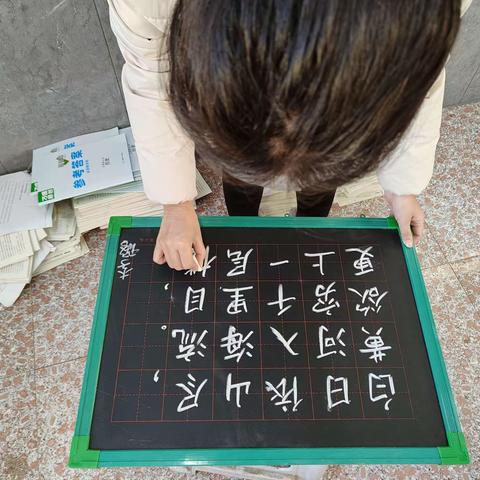 白日依山尽，
黄河入海流。
欲穷千里目，
更上一层
参考答案